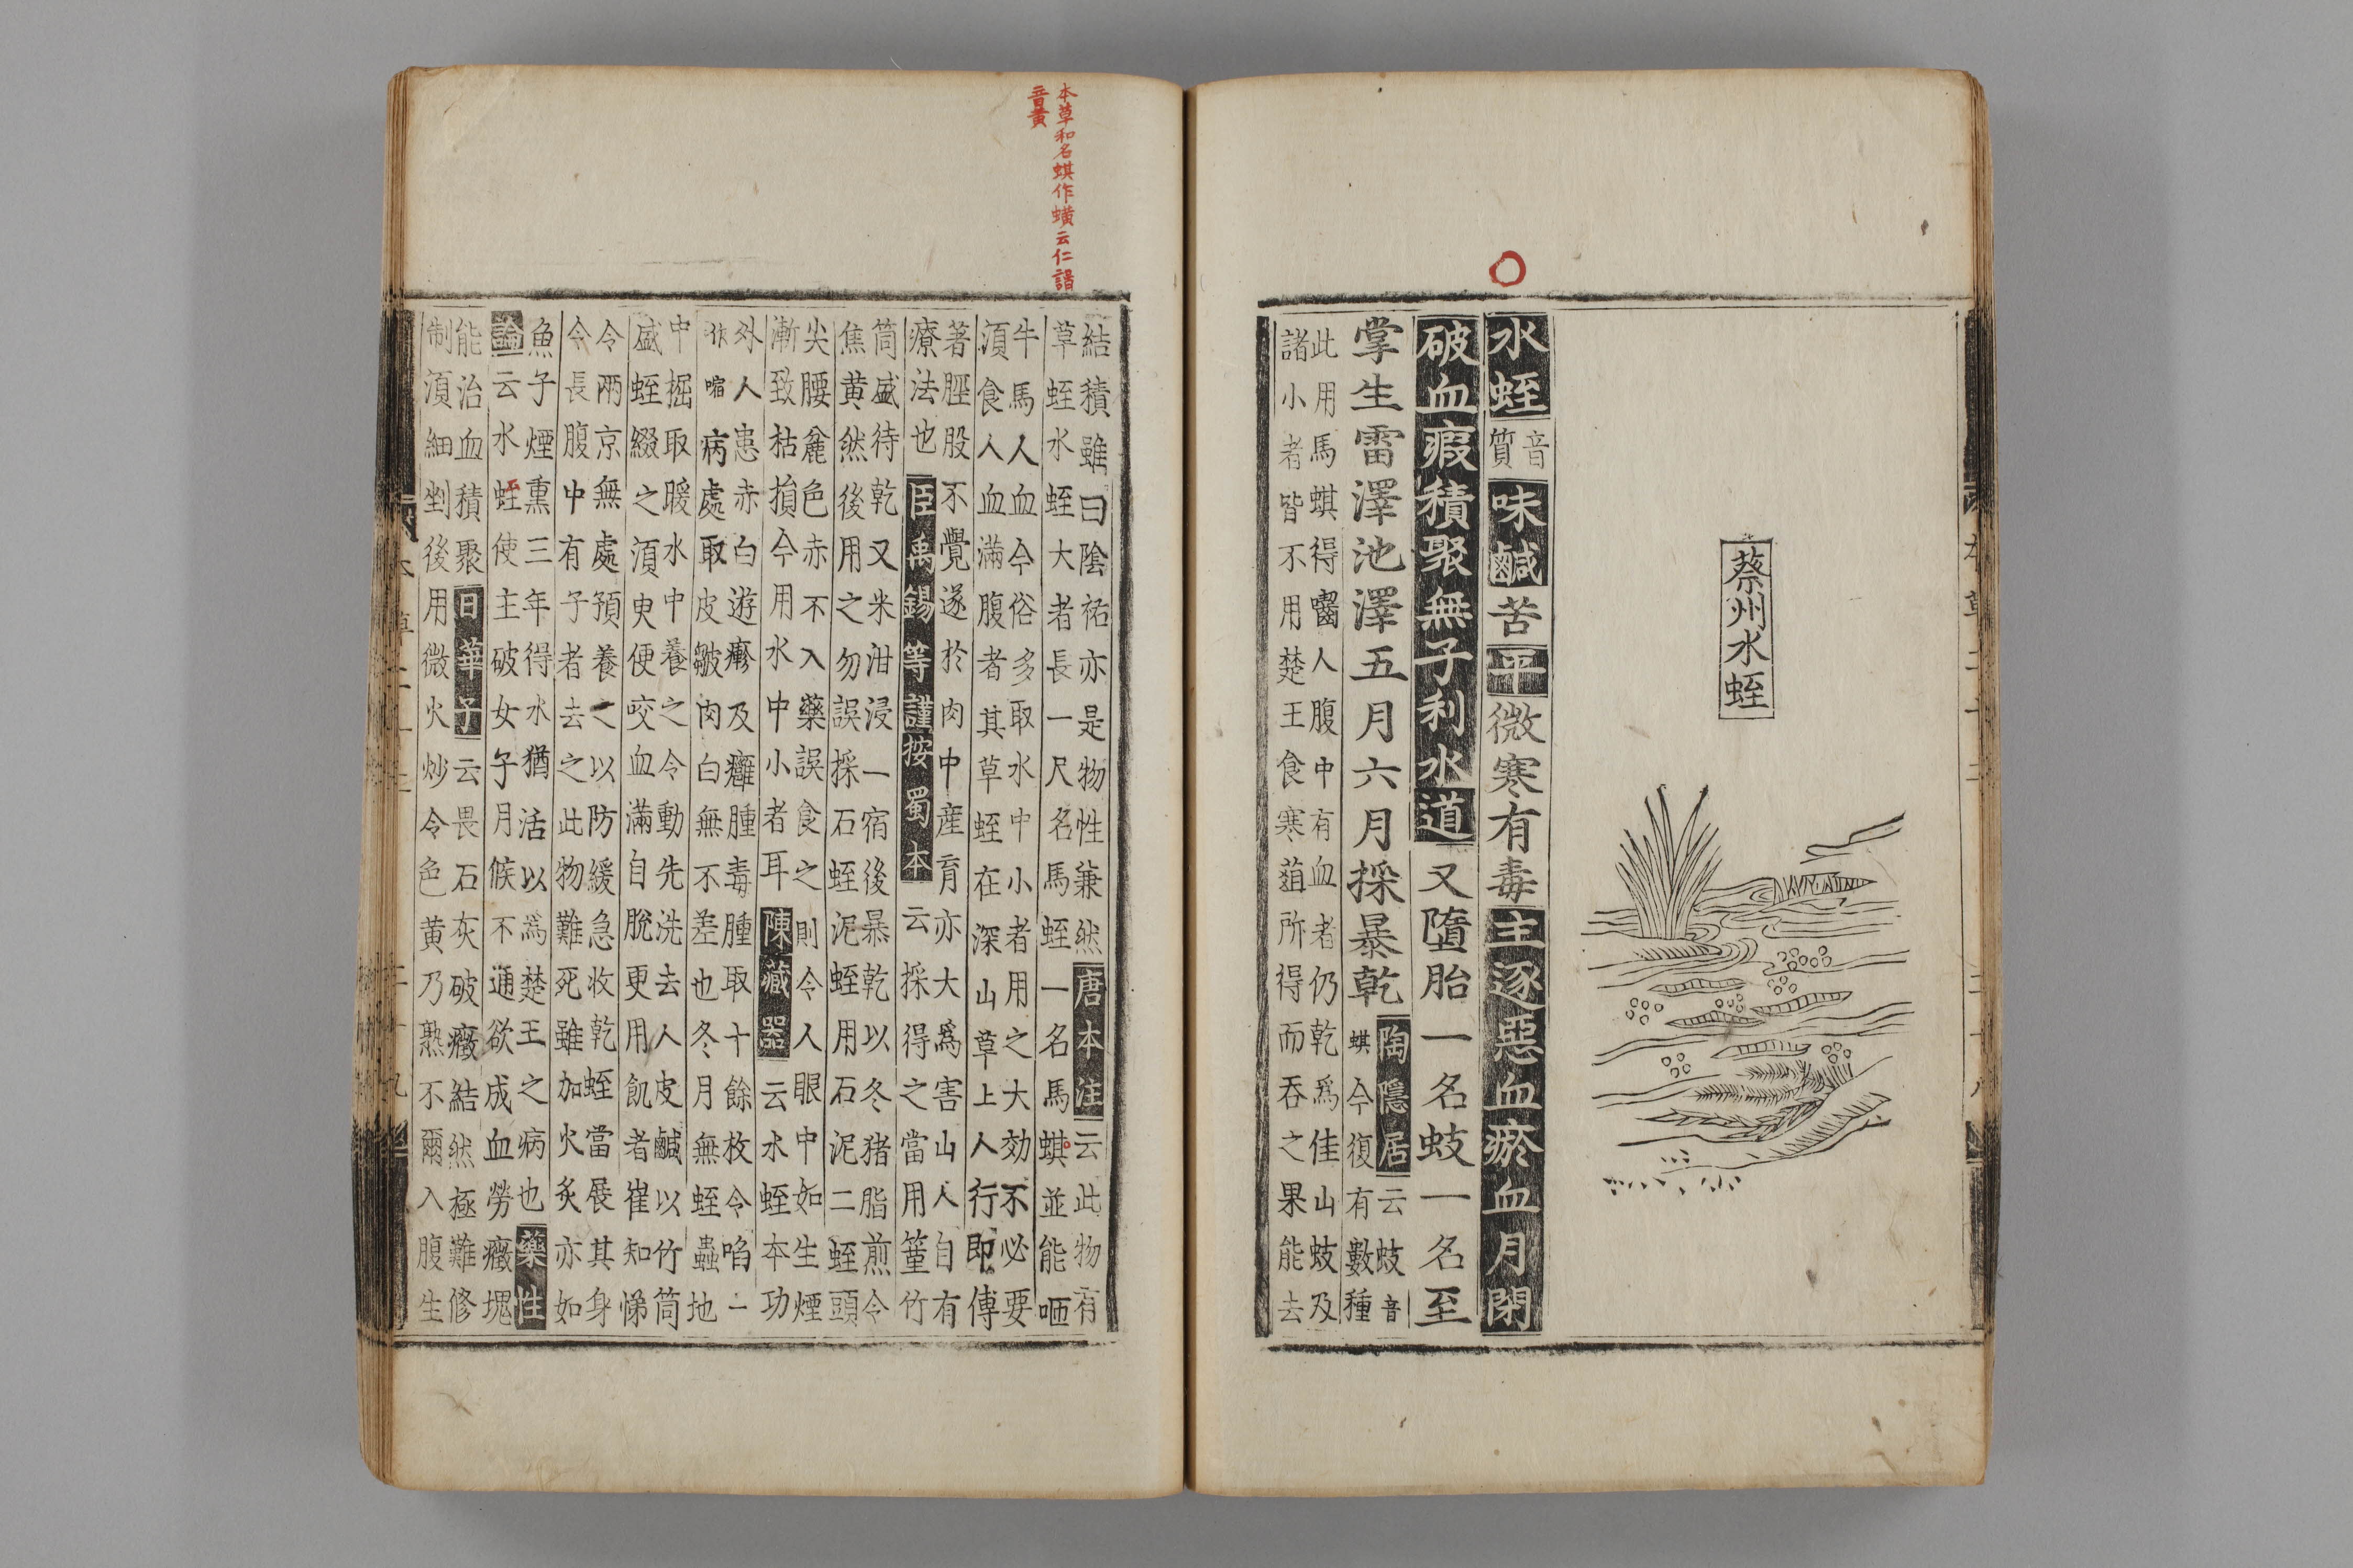 蔡州水蛭
水蛭音質味鹹苦平微寒有毒主逐惡血瘀血月閉
破血瘕積聚無子利水道又墮胎一名蚑一名至
掌生雷澤池澤五月六月採暴乾
陶隱居云蚑音
蜞今復有數種
此用馬蜞得嚙人腹中有血者仍乾爲佳山蚑及
諸小者皆不用楚王食寒葅所得而吞之果能去
本草和名蜞作蟥云仁諝
音黃
結積雖曰陰祐亦是物性兼然唐本注云此物有
草蛭水蛭大者長一尺名馬蛭一名馬蜞並能咂
牛馬人血今俗多取水中小者用之大効不必要
須食人血滿腹者其草蛭在深山草上人行即傅
著脛股不覺遂於肉中產育亦大爲害山人自有
療法也臣禹錫等謹按蜀本云採得之當用篁竹
筒盛待乾又米泔浸一宿後暴乾以冬猪脂煎令
焦黄然後用之勿誤採石蛭泥蛭用石泥二蛭頭
尖腰麄色赤不入藥誤食之則令人眼中如生煙
漸致枯損今用水中小者耳陳藏器云水蛭本功
外人患赤白遊癬及癰腫毒腫取十餘枚令啗一
病處取皮皺肉白無不差也冬月無蛭蟲地
中掘取暖水中養之令動先洗去人皮鹹以竹筒
盛蛭綴之須臾便咬血滿自脫更用飢者崔知悌
令兩京無處預養之以防緩急收乾蛭當展其身
令長腹中有子者去之此物難死雖加火炙亦如
魚子煙熏三年得水猶活以爲楚王之病也藥性
論云水蛭使主破女子月候不通欲成血勞癥塊
能治血積聚日華子云畏石灰破癥結然極難修
制須細剉後用微火炒令色黄乃熟不爾入腹生